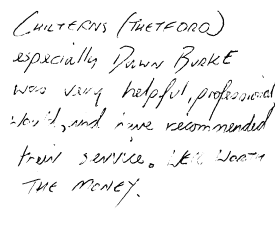 CHILTERNS (THETFORD)
especially DAWN BURKE
was very helpful, professional
would, and have recommended
their service. WELL WORTH
THE MONEY.